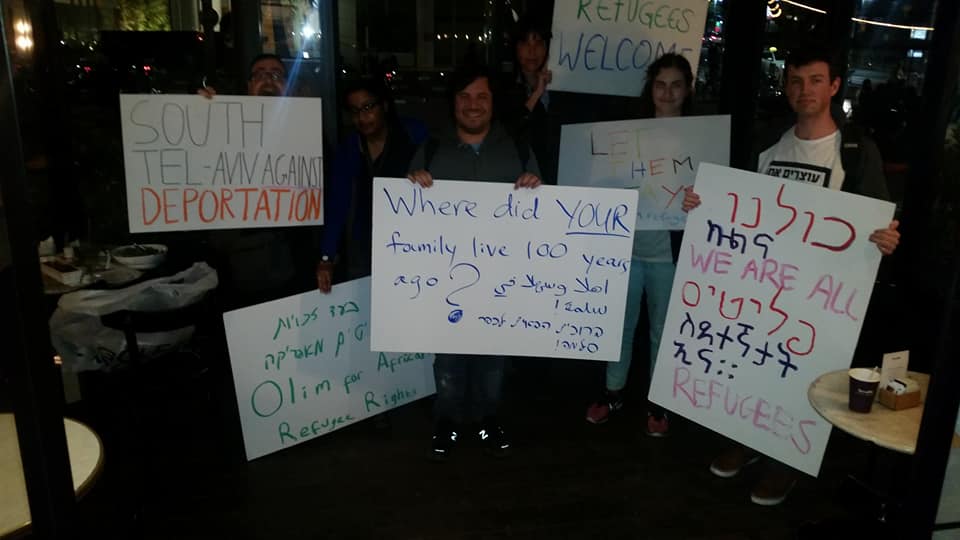 REFUGEES
WELCOME
SOUTH
TEL-AVIV AGAINST
DEPORTATION
LET
THEM
AY
Where did YOUR
family live 100 years
ago? اهلا وسهلا في
سلمة!
ברוכים הבאים לכפר
סלמה!
בעד זכויות
מאפריקה
Olim for African
Refugee Rights
עוצרים את
כולנו
ኩልና
WE ARE ALL
פליטים
ስደተኛታት
ኢና።
REFUGEES